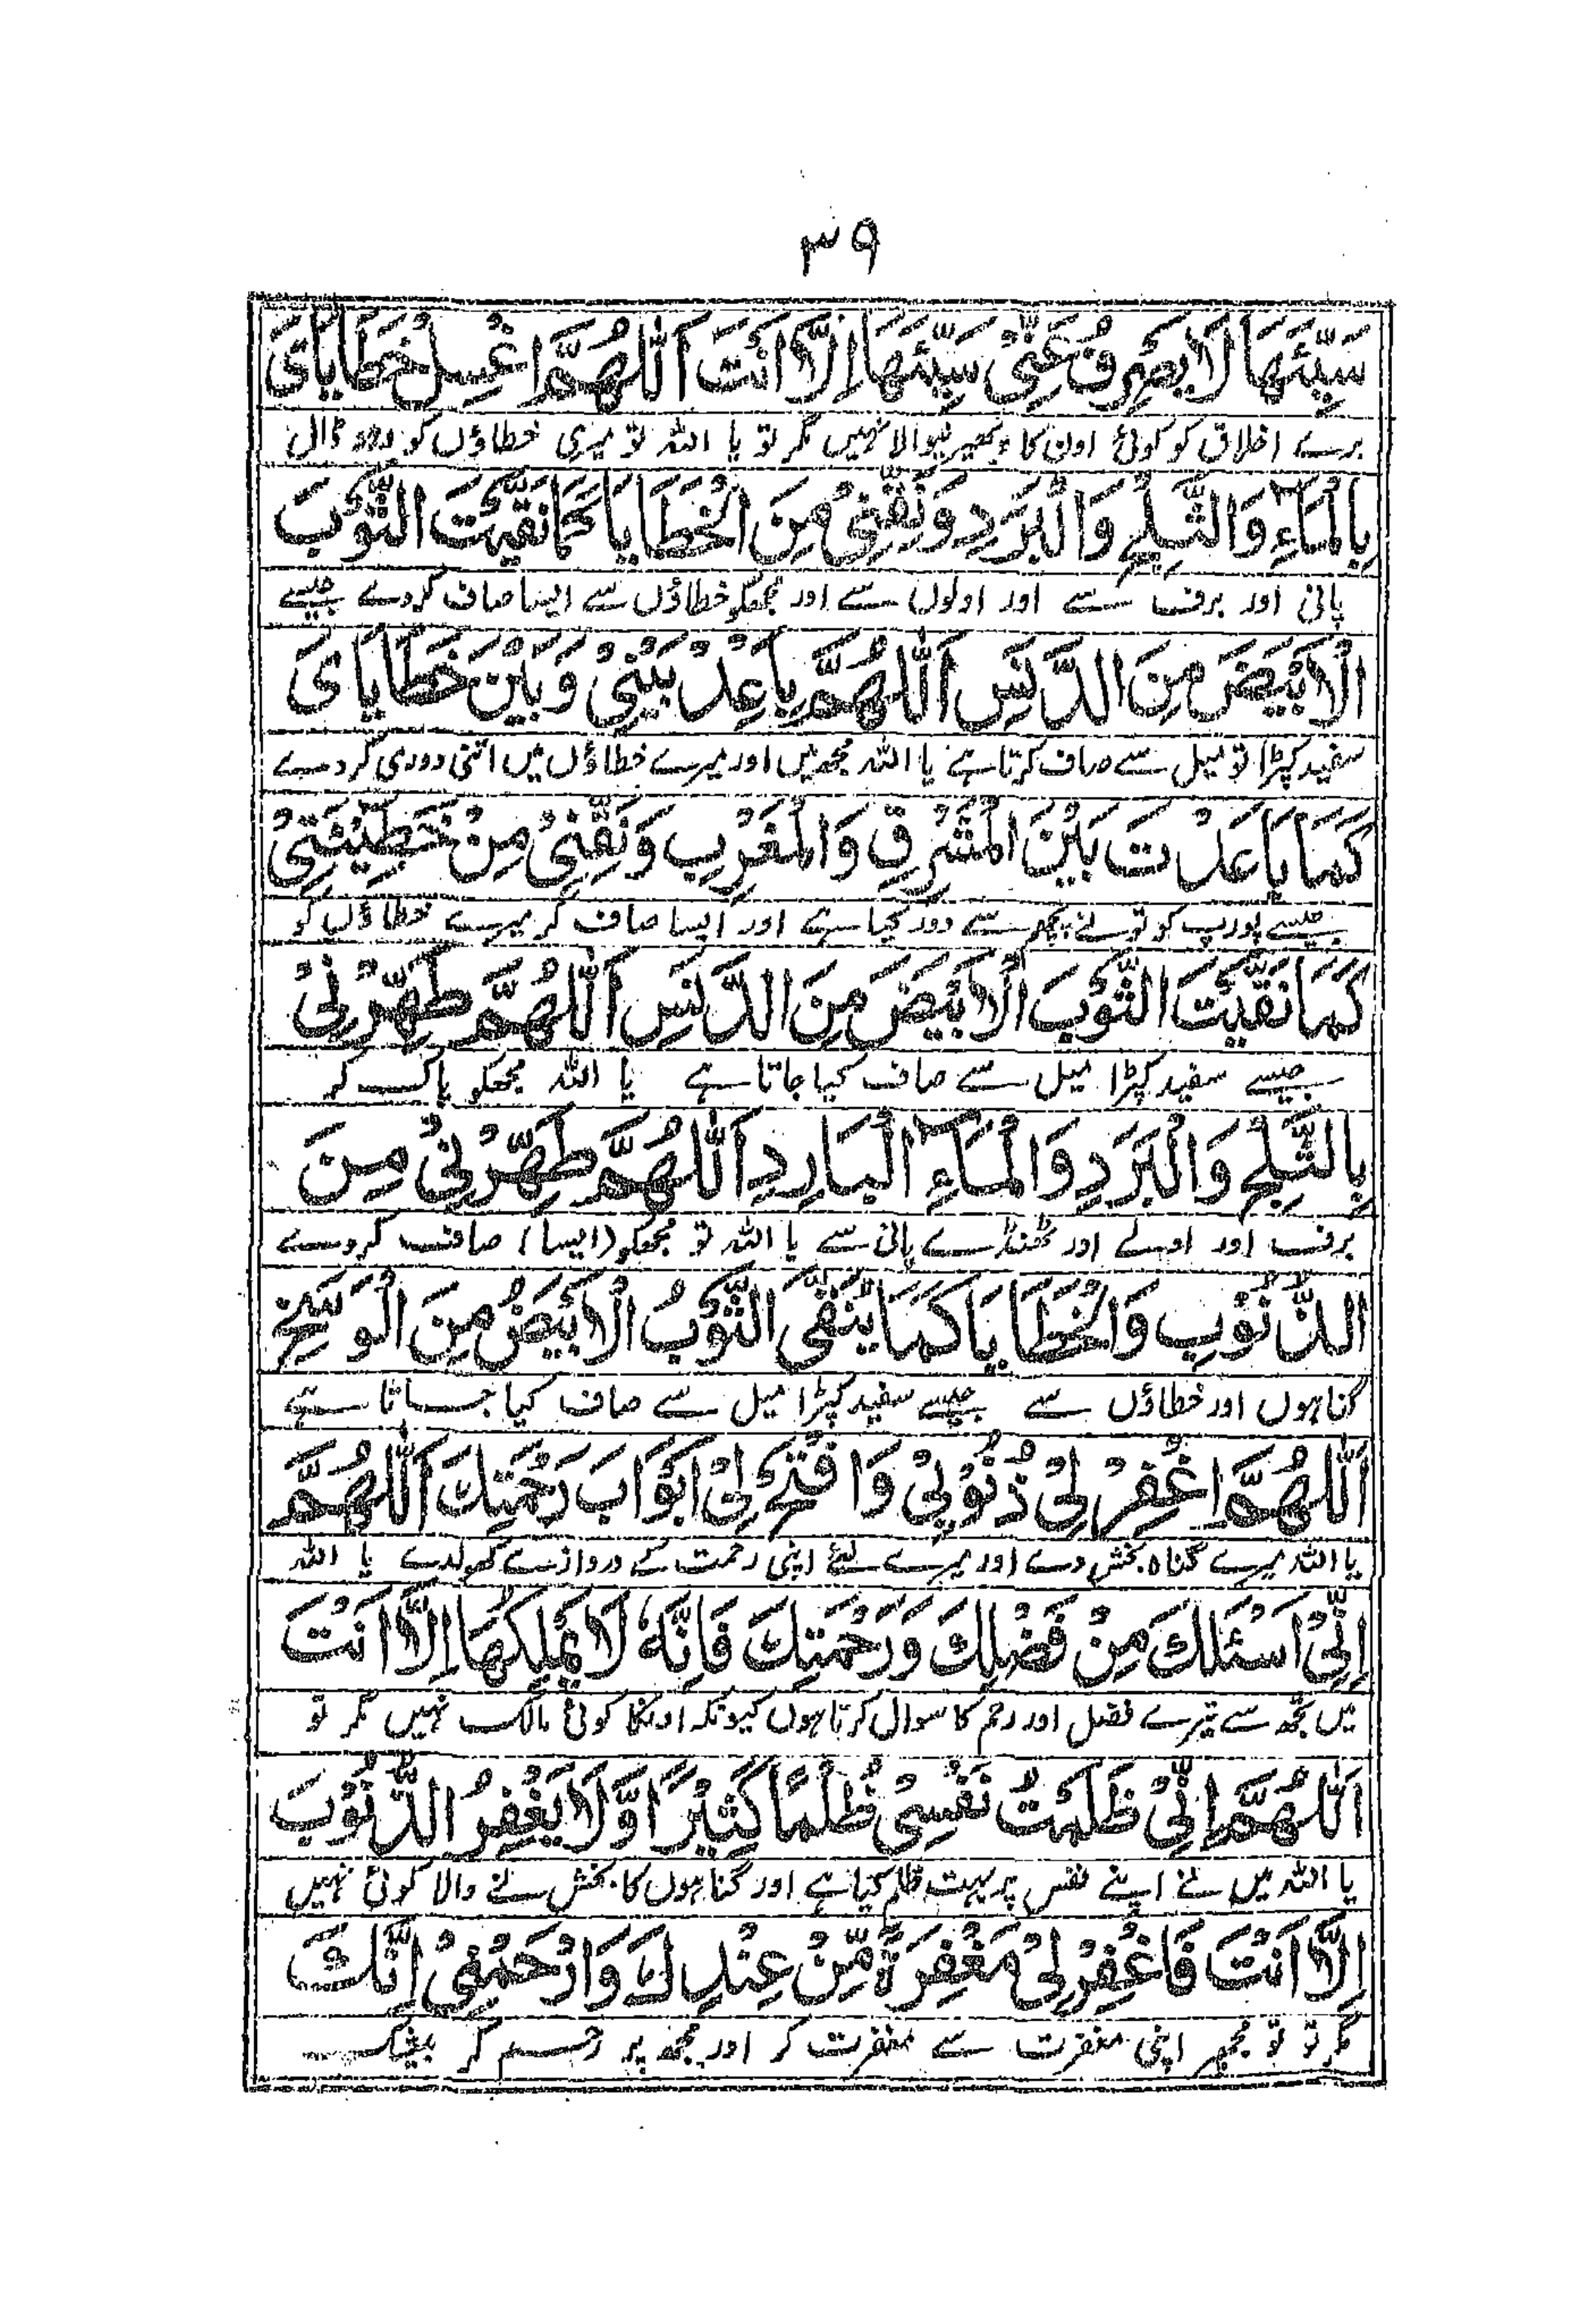 ٣٩
سَيِّئَهَا لَا يَصْرِفُ عَنِّيْ سَيِّئَهَا اِلَّا اَنْتَ اَللّٰهُمَّ اغْسِلْ خَطَايَایَ
برے اخلاق کو کوئی اون کا پھیرنیوالا نہیں مگر تو یا اللہ تو میری خطاؤں کو دہو ڈال
بِالْمَاءِ وَالثَّلْجِ وَالْبَرَدِ وَنَقِّنِيْ مِنَ الْخَطَايَا كَمَا نَقَّيْتَ الثَّوْبَ
پانی اور برف سے اور اولوں سے اور مجھکو خطاؤں سے ایسا صاف کردے جیسے
الْاَبْيَضَ مِنَ الدَّنَسِ اَللّٰهُمَّ بَاعِدْ بَيْنِيْ وَبَيْنَ خَطَايَایَ
سفید کپڑا تو میل سے صاف کرتا ہے یا اللہ مجھ میں اور میرے خطاؤں میں اتنی دوری کردے
كَمَا بَاعَدْتَ بَيْنَ الْمَشْرِقِ وَالْمَغْرِبِ وَنَقِّنِيْ مِنْ خَطِيْئَتِيْ
جیسے پورب کو تو نے پچھم سے دور کیا ہے اور ایسا صاف کر میرے خطاؤں کو
كَمَا نَقَّيْتَ الثَّوْبَ الْاَبْيَضَ مِنَ الدَّنَسِ اَللّٰهُمَّ طَهِّرْنِيْ
جیسے سفید کپڑا میل سے صاف کیا جاتا ہے یا اللہ مجھکو پاک کر
بِالثَّلْجِ وَالْبَرَدِ وَالْمَاءِ الْبَارِدِ اَللّٰهُمَّ طَهِّرْنِيْ مِنَ
برف اور اولے اور ٹھنڈے پانی سے یا اللہ تو مجھکو (ایسا) صاف کردے
الذُّنُوْبِ وَالْخَطَايَا كَمَا يُنَقَّى الثَّوْبُ الْاَبْيَضُ مِنَ الْوَسَخِ
گناہوں اور خطاؤں سے جیسے سفید کپڑا میل سے صاف کیا جاتا ہے
اَللّٰهُمَّ اغْفِرْ لِيْ ذُنُوْبِيْ وَافْتَحْ لِيْ اَبْوَابَ رَحْمَتِكَ اَللّٰهُمَّ
یا اللہ میرے گناہ بخش دے اور میرے لئے اپنی رحمت کے دروازے کھولدے یا اللہ
اِنِّيْ اَسْئَلُكَ مِنْ فَضْلِكَ وَرَحْمَتِكَ فَاِنَّهٗ لَا يَمْلِكُهَا اِلَّا اَنْتَ
میں تجھ سے تیرے فضل اور رحم کا سوال کرتا ہوں کیونکہ اونکا کوئی مالک نہیں مگر تو
اَللّٰهُمَّ اِنِّيْ ظَلَمْتُ نَفْسِيْ ظُلْمًا كَثِيْرًا وَّلَا يَغْفِرُ الذُّنُوْبَ
یا اللہ میں نے اپنے نفس پر بہت ظلم کیا ہے اور گناہوں کا بخش نے والا کوئی نہیں
اِلَّا اَنْتَ فَاغْفِرْ لِيْ مَغْفِرَةً مِّنْ عِنْدِكَ وَارْحَمْنِيْ اِنَّكَ
مگر تو تو مجھپر اپنی مغفرت سے مغفرت کر اور مجھ پر رحم کر بیشک